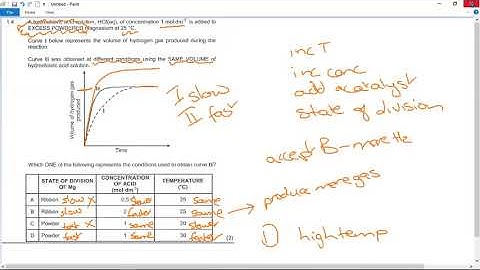 Untitled - Paint
1.4 A hydrochloric acid solution, HCℓ(aq), of concentration 1 mol·dm⁻³ is added to
EXCESS POWDERED magnesium at 25 °C.
Curve I below represents the volume of hydrogen gas produced during the
reaction.
Curve B was obtained at different conditions using the SAME VOLUME of
hydrochloric acid solution.
Volume of hydrogen gas
produced
Time
I slow
II fast
inc T
inc conc
add a catalyst
state of division
accept B - more H2
produce more gas
D high temp
Which ONE of the following represents the conditions used to obtain curve B?
STATE OF DIVISION OF Mg
CONCENTRATION OF ACID (mol·dm⁻³)
TEMPERATURE (°C)
A Ribbon slow X 0,5 slower 25 same
B Ribbon slow 2 faster 25 same
C Powder fast X 1 same 20 slower
D Powder fast 1 same 30 faster
(2)